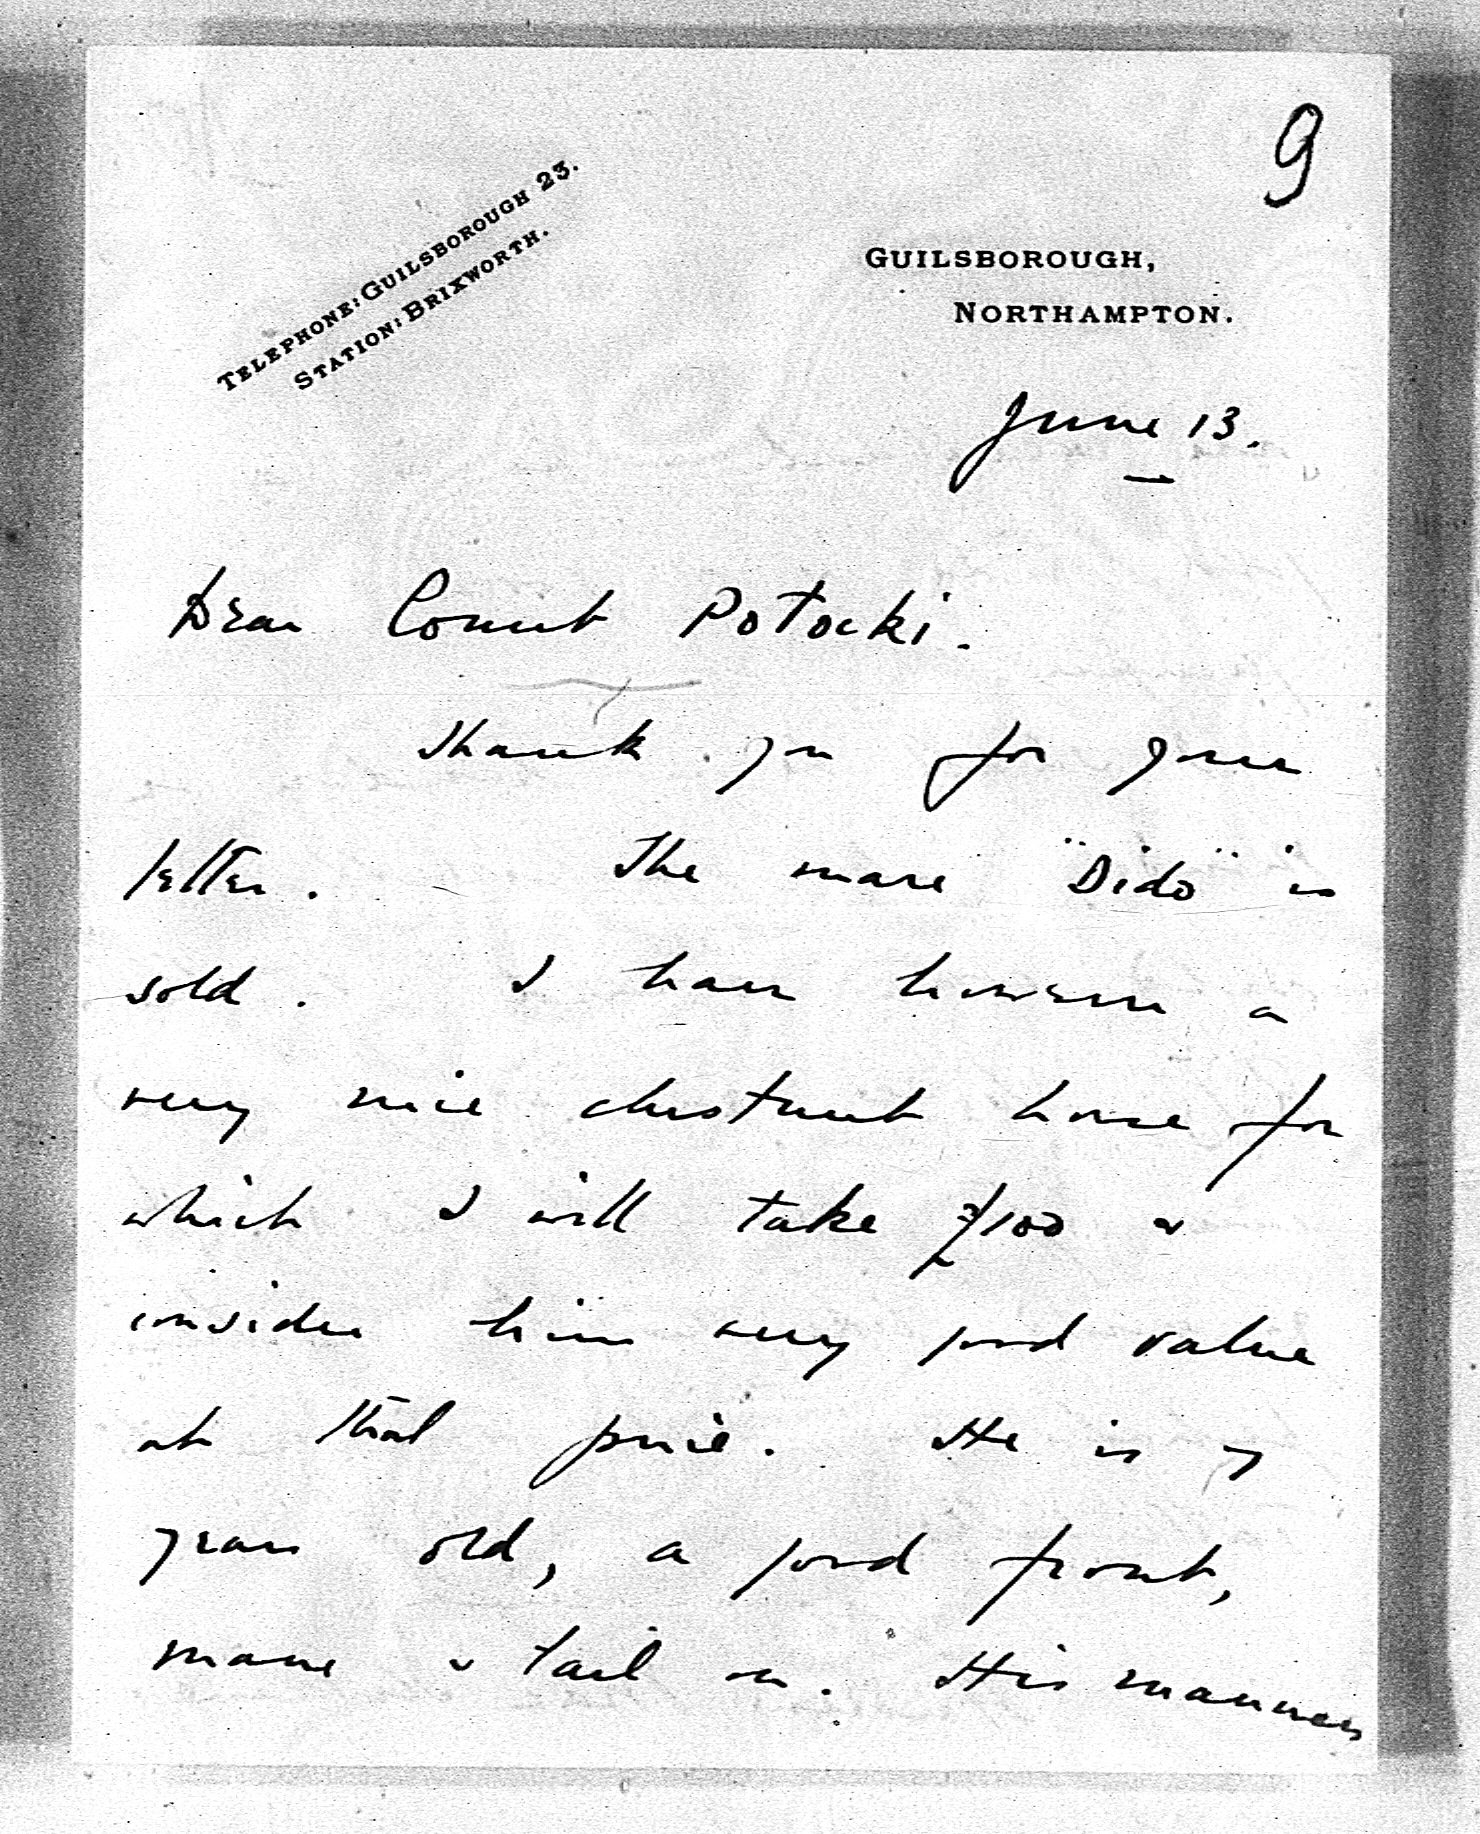 9
TELEPHONE: GUILSBOROUGH 23.
STATION: BRIXWORTH.
GUILSBOROUGH,
NORTHAMPTON.
June 13.
Dear Count Potocki.
Thank you for your
letter. The mare "Dido" is
sold. I have however a
very nice chestnut horse for
which I will take £100 &
consider him very good value
at that price. He is 7
years old, a good front,
mane & tail on. His manners